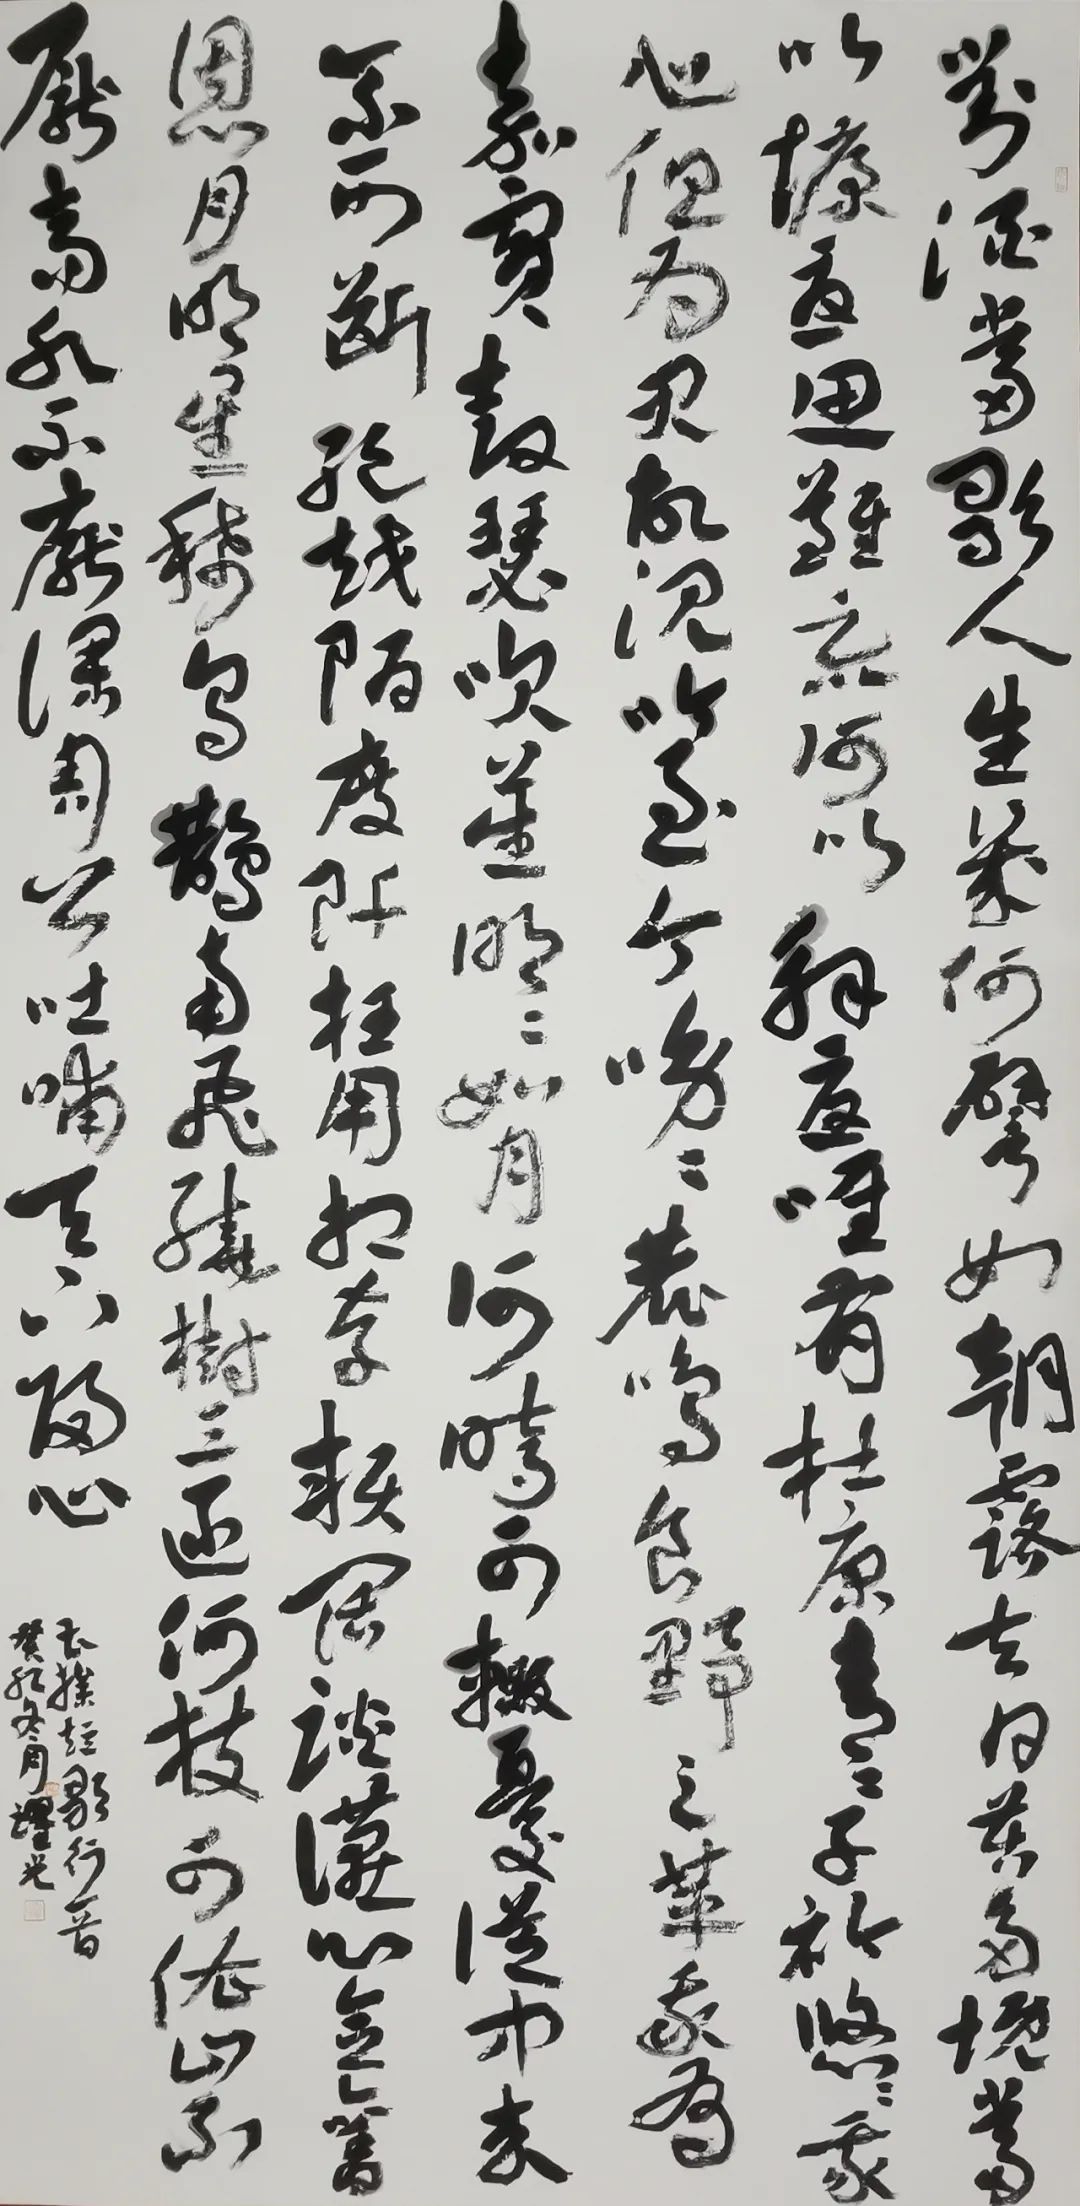 對酒當歌人生幾何譬如朝露去日苦多慨當
以慷憂思難忘何以解憂唯有杜康青〻子衿悠〻我
心但為君故沉吟至今呦〻鹿鳴食野之苹我有
嘉賓鼓瑟吹笙明〻如月何時可輟憂從中來
不可斷絕越陌度阡枉用相存契闊談讌心念舊
恩月明星稀烏鵲南飛繞樹三匝何枝可依山不
厭高水不厭深周公吐哺天下歸心
曹操短歌行一首
癸卯冬月躍光